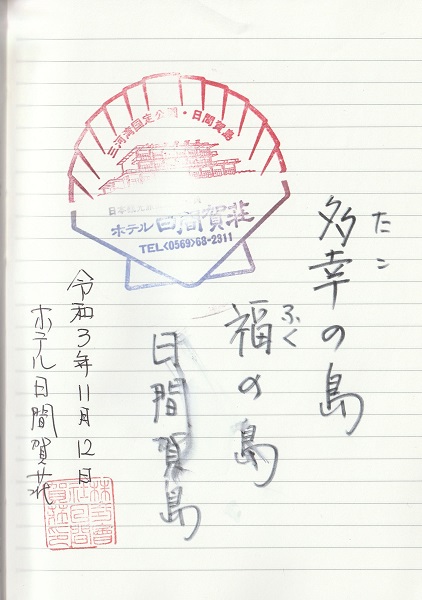 三河湾国定公園・日間賀島
ホテル日間賀荘
TEL<0569>68-2311
多幸の島
タコ
福の島
ふく
日間賀島
令和3年11月12日
ホテル日間賀荘